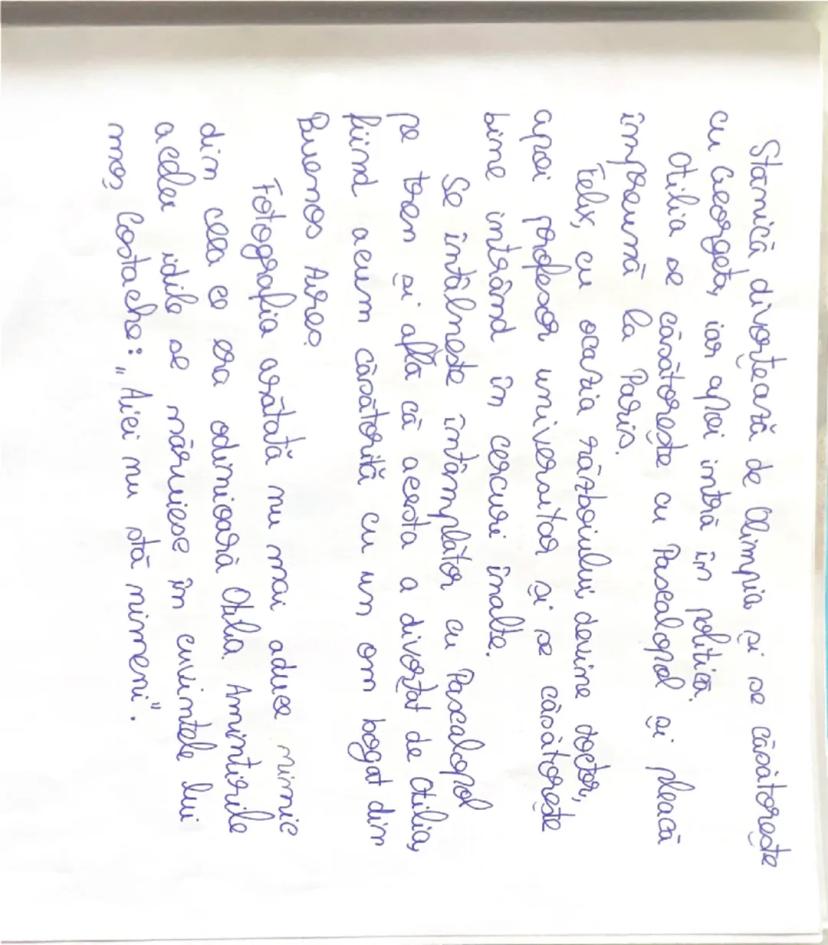 Stănică divorțează de Olimpia și se căsătorește
cu Georgeta, iar apoi intră în politică.
Otilia se căsătorește cu Pascalopol și pleacă
împreună la Paris.
Felix, cu ocazia războiului devine doctor,
apoi profesor universitar și se căsătorește
bine intrând în cercuri înalte.
Se întâlnește întâmplător cu Pascalopol
pe tren și află că acesta a divorțat de Otilia,
fiind acum căsătorită cu un om bogat din
Buenos Aires.
Fotografia arătată nu mai aduce nimic
din ceea ce era odinioară Otilia. Amintirile
acelei idile se năruiesc în cuvintele lui
moș Costache: „Aici nu stă nimeni".